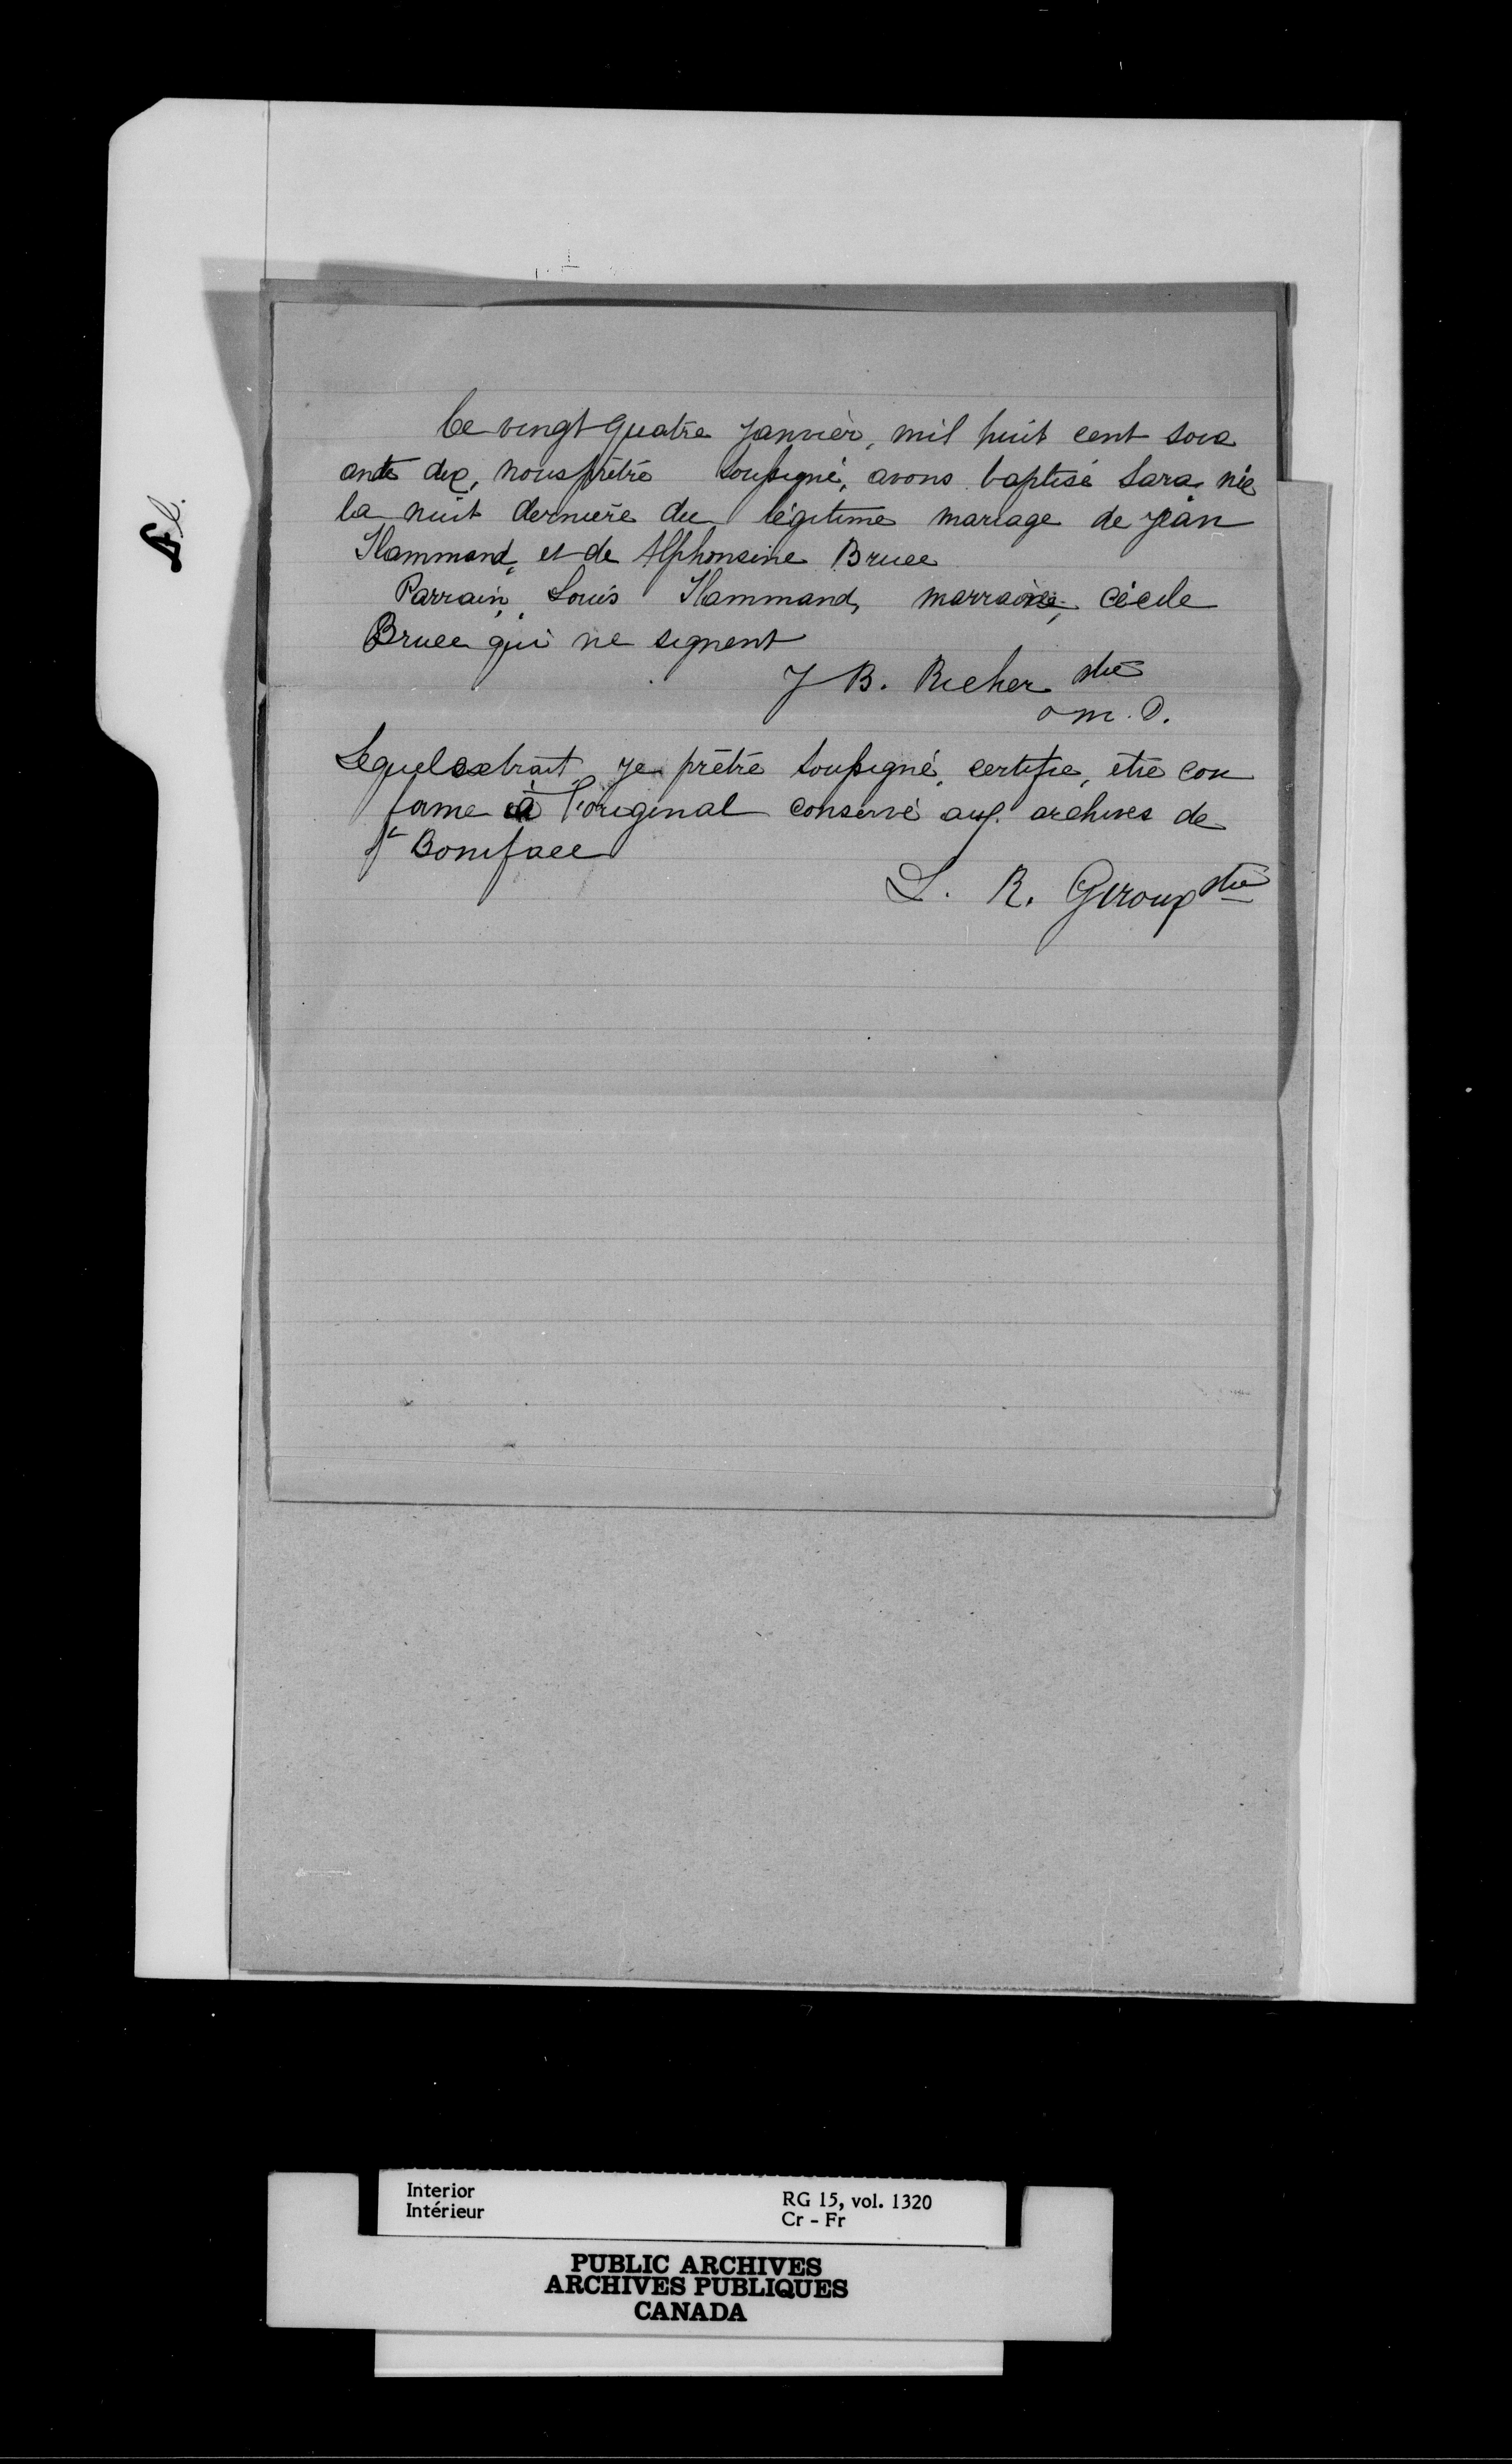 Ce vingt quatre janvier, mil huit cent soix
ante dix, nous prêtre soussigné, avons baptisé Sara née
la nuit dernière du légitime mariage de Jean
Hammand, et de Alphonsine Bruce
Parrain, Louis Hammand, marraine, Cécile
Bruce qui ne signent
J B. Richer ptre
o m. I.
Lequel extrait je prêtre soussigné, certifie, être con
forme à l'original conservé aux archives de
St Boniface
L. R. Giroux ptre
Interior
Intérieur
RG 15, vol. 1320
Cr - Fr
PUBLIC ARCHIVES
ARCHIVES PUBLIQUES
CANADA